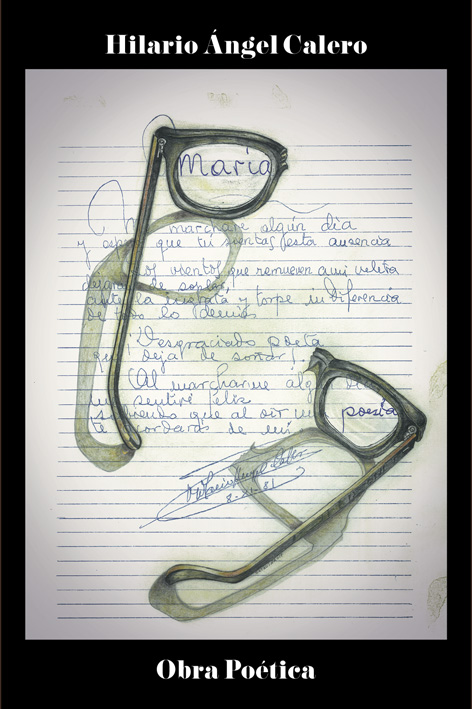 Hilario Ángel Calero
María
Me marchare algún dia
y espero que tú sientas esta ausencia
los vientos que remueven a mi veleta
dejarán de soplar
ante la inmensa y torpe indiferencia
de todo lo demás
¡Desgraciado poeta
que deja de soñar!
Al marcharme algún día
me sentiré feliz
sabiendo que al oir una poesía
te acordarás de mí
8-XI-81
Obra Poética